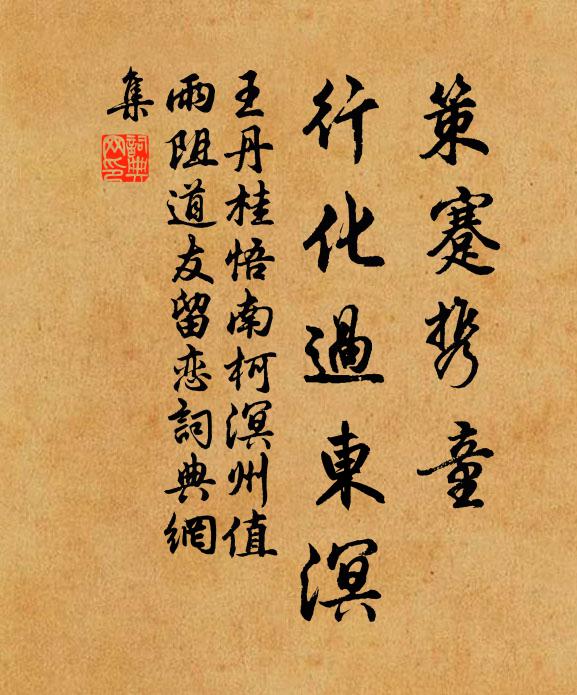 策蹇携童
行化過東溟
王丹桂悟南柯溟州值
雨阻道友留恋詞典網
集
詞典网印